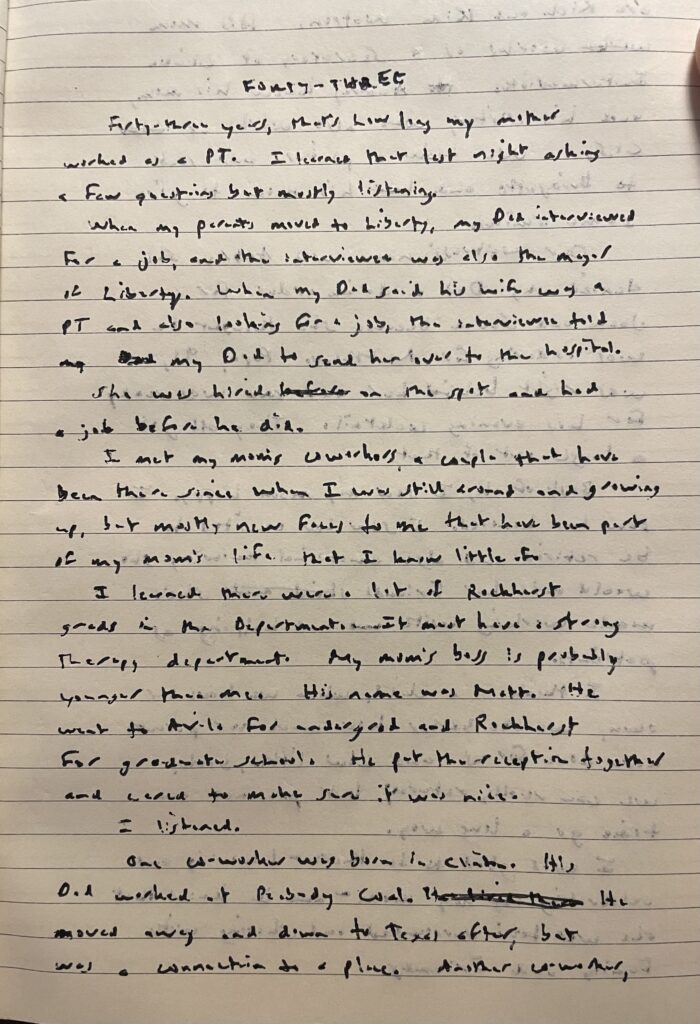 FORTY-THREE
Forty-three years, that's how long my mother
worked as a PT. I learned that last night asking
a few questions but mostly listening.
When my parents moved to Liberty, my Dad interviewed
for a job, and the interviewer was also the mayor
of Liberty. When my Dad said his wife was a
PT and also looking for a job, the interviewer told
my Dad to send her over to the hospital.
She was hired before on the spot and had
a job before he did.
I met my mom's coworkers, a couple that have
been there since when I was still around and growing
up, but mostly new faces to me that have been part
of my mom's life that I know little of.
I learned there were a lot of Rockhurst
grads in the Department. It must have a strong
therapy department. My mom's boss is probably
younger than me. His name was Matt. He
went to Avila for undergrad and Rockhurst
for graduate school. He put the reception together
and cared to make sure it was nice.
I listened.
One co-worker was born in Clinton. His
Dad worked at Peabody Coal. He
moved away and down to Texas after, but
was a connection to a place. Another co-worker,